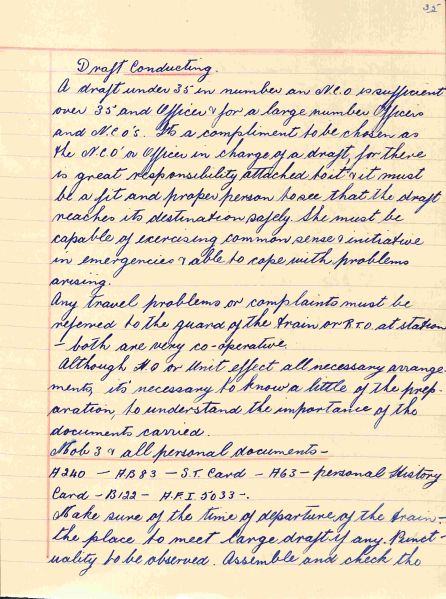 35
Draft Conducting.
A draft under 35 in number an N.C.O is sufficient
over 35 and Officer & for a large number Officers
and N.C.O's. Its a compliment to be chosen as
the N.C.O or Officer in charge of a draft, for there
is great responsibility attached to it & it must
be a fit and proper person to see that the draft
reaches its destination safely. She must be
capable of exercising common sense & initiative
in emergencies & able to cope with problems
arising.
Any travel problems or complaints must be
referred to the guard of the train or R.T.O. at station
- both are very co-operative.
Although H Q or Unit effect all necessary arrange-
ments, it's necessary to know a little of the prep-
aration, to understand the importance of the
documents carried.
Mob 3 & all personal documents -
A240 - AB83 - S.T. Card - A63 - personal History
Card - B122 - A.F.I. 5033 -.
Make sure of the time of departure of the train -
the place to meet large draft if any. Punct-
uality to be observed. Assemble and check the